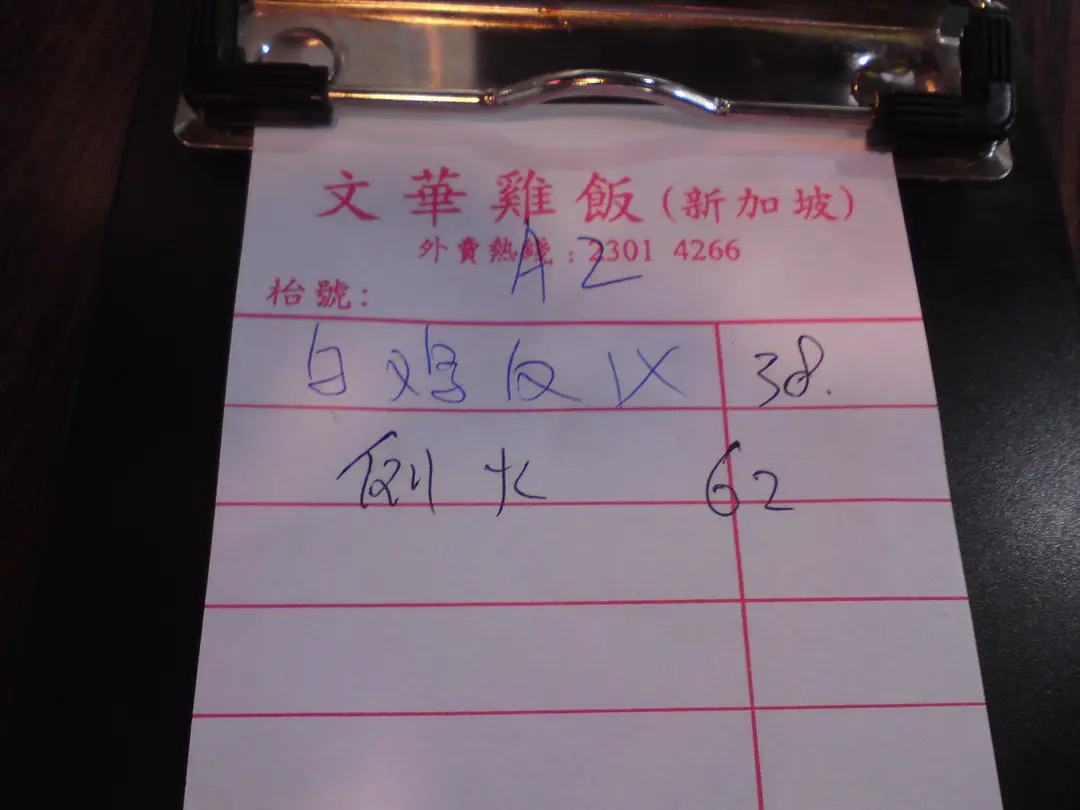 文華雞飯(新加坡)
外賣熱綫:2301 4266
枱號: A2
白鸡反 1X 38.
62